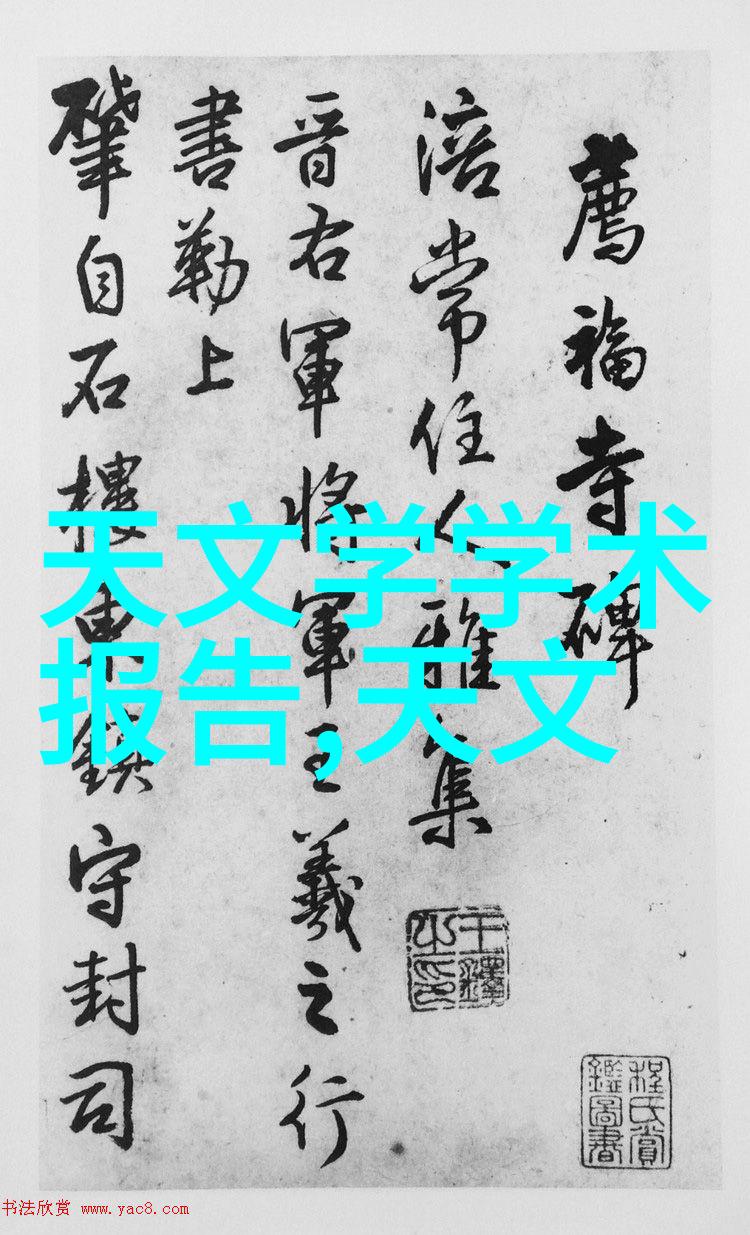 薦福寺碑
涪常住人雅集
晋右軍將軍王羲之行
書勒上
肇自石樓東守封司
天文学学术
报告,天文
王鐸之印
程氏賞鑑圖書
书法欣赏 www.yac8.com